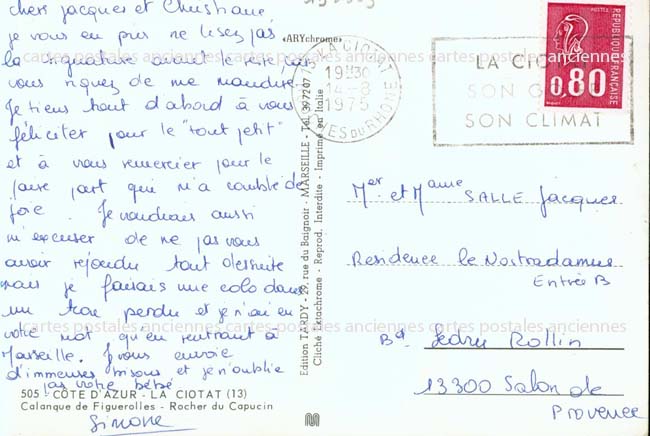 chers Jacques et Christiane
je vous en prie ne lisez pas
la signature avant le reste car
vous risquez de me maudire.
Je tiens tout d'abord à vous
féliciter pour le "tout petit"
et à vous remercier pour le
faire part qui m'a comblé de
joie. Je voudrais aussi
m'excuser de ne pas vous
avoir répondu tout de suite
mais je faisais une colo dans
un trou perdu et je n'ai eu
votre mot qu'en rentrant à
Marseille. Je vous envoie
d'immenses bisous et je n'oublie
pas votre bébé
505 - CÔTE D'AZUR - LA CIOTAT (13)
Calanque de Figuerolles - Rocher du Capucin
Simone
«ARYchrome»
Edition TARDY - 29, rue du Baignoir - MARSEILLE - Tél. 397207
Cliché Ektachrome - Reprod. Interdite - Imprimé en Italie
13 LA CIOTAT
19H30
14-8
1975
BOUCHES DU RHONE
LA CIOTAT
SON
SON CLIMAT
POSTES
REPUBLIQUE FRANÇAISE
0,80
Mer et Mame SALLE Jacques
Residence le Nostradamus
Entrée B
Bd Ledru Rollin
13300 Salon de
Provence
cartes postales anciennes cartes postales anciennes
cartes postales anciennes cartes postales anciennes